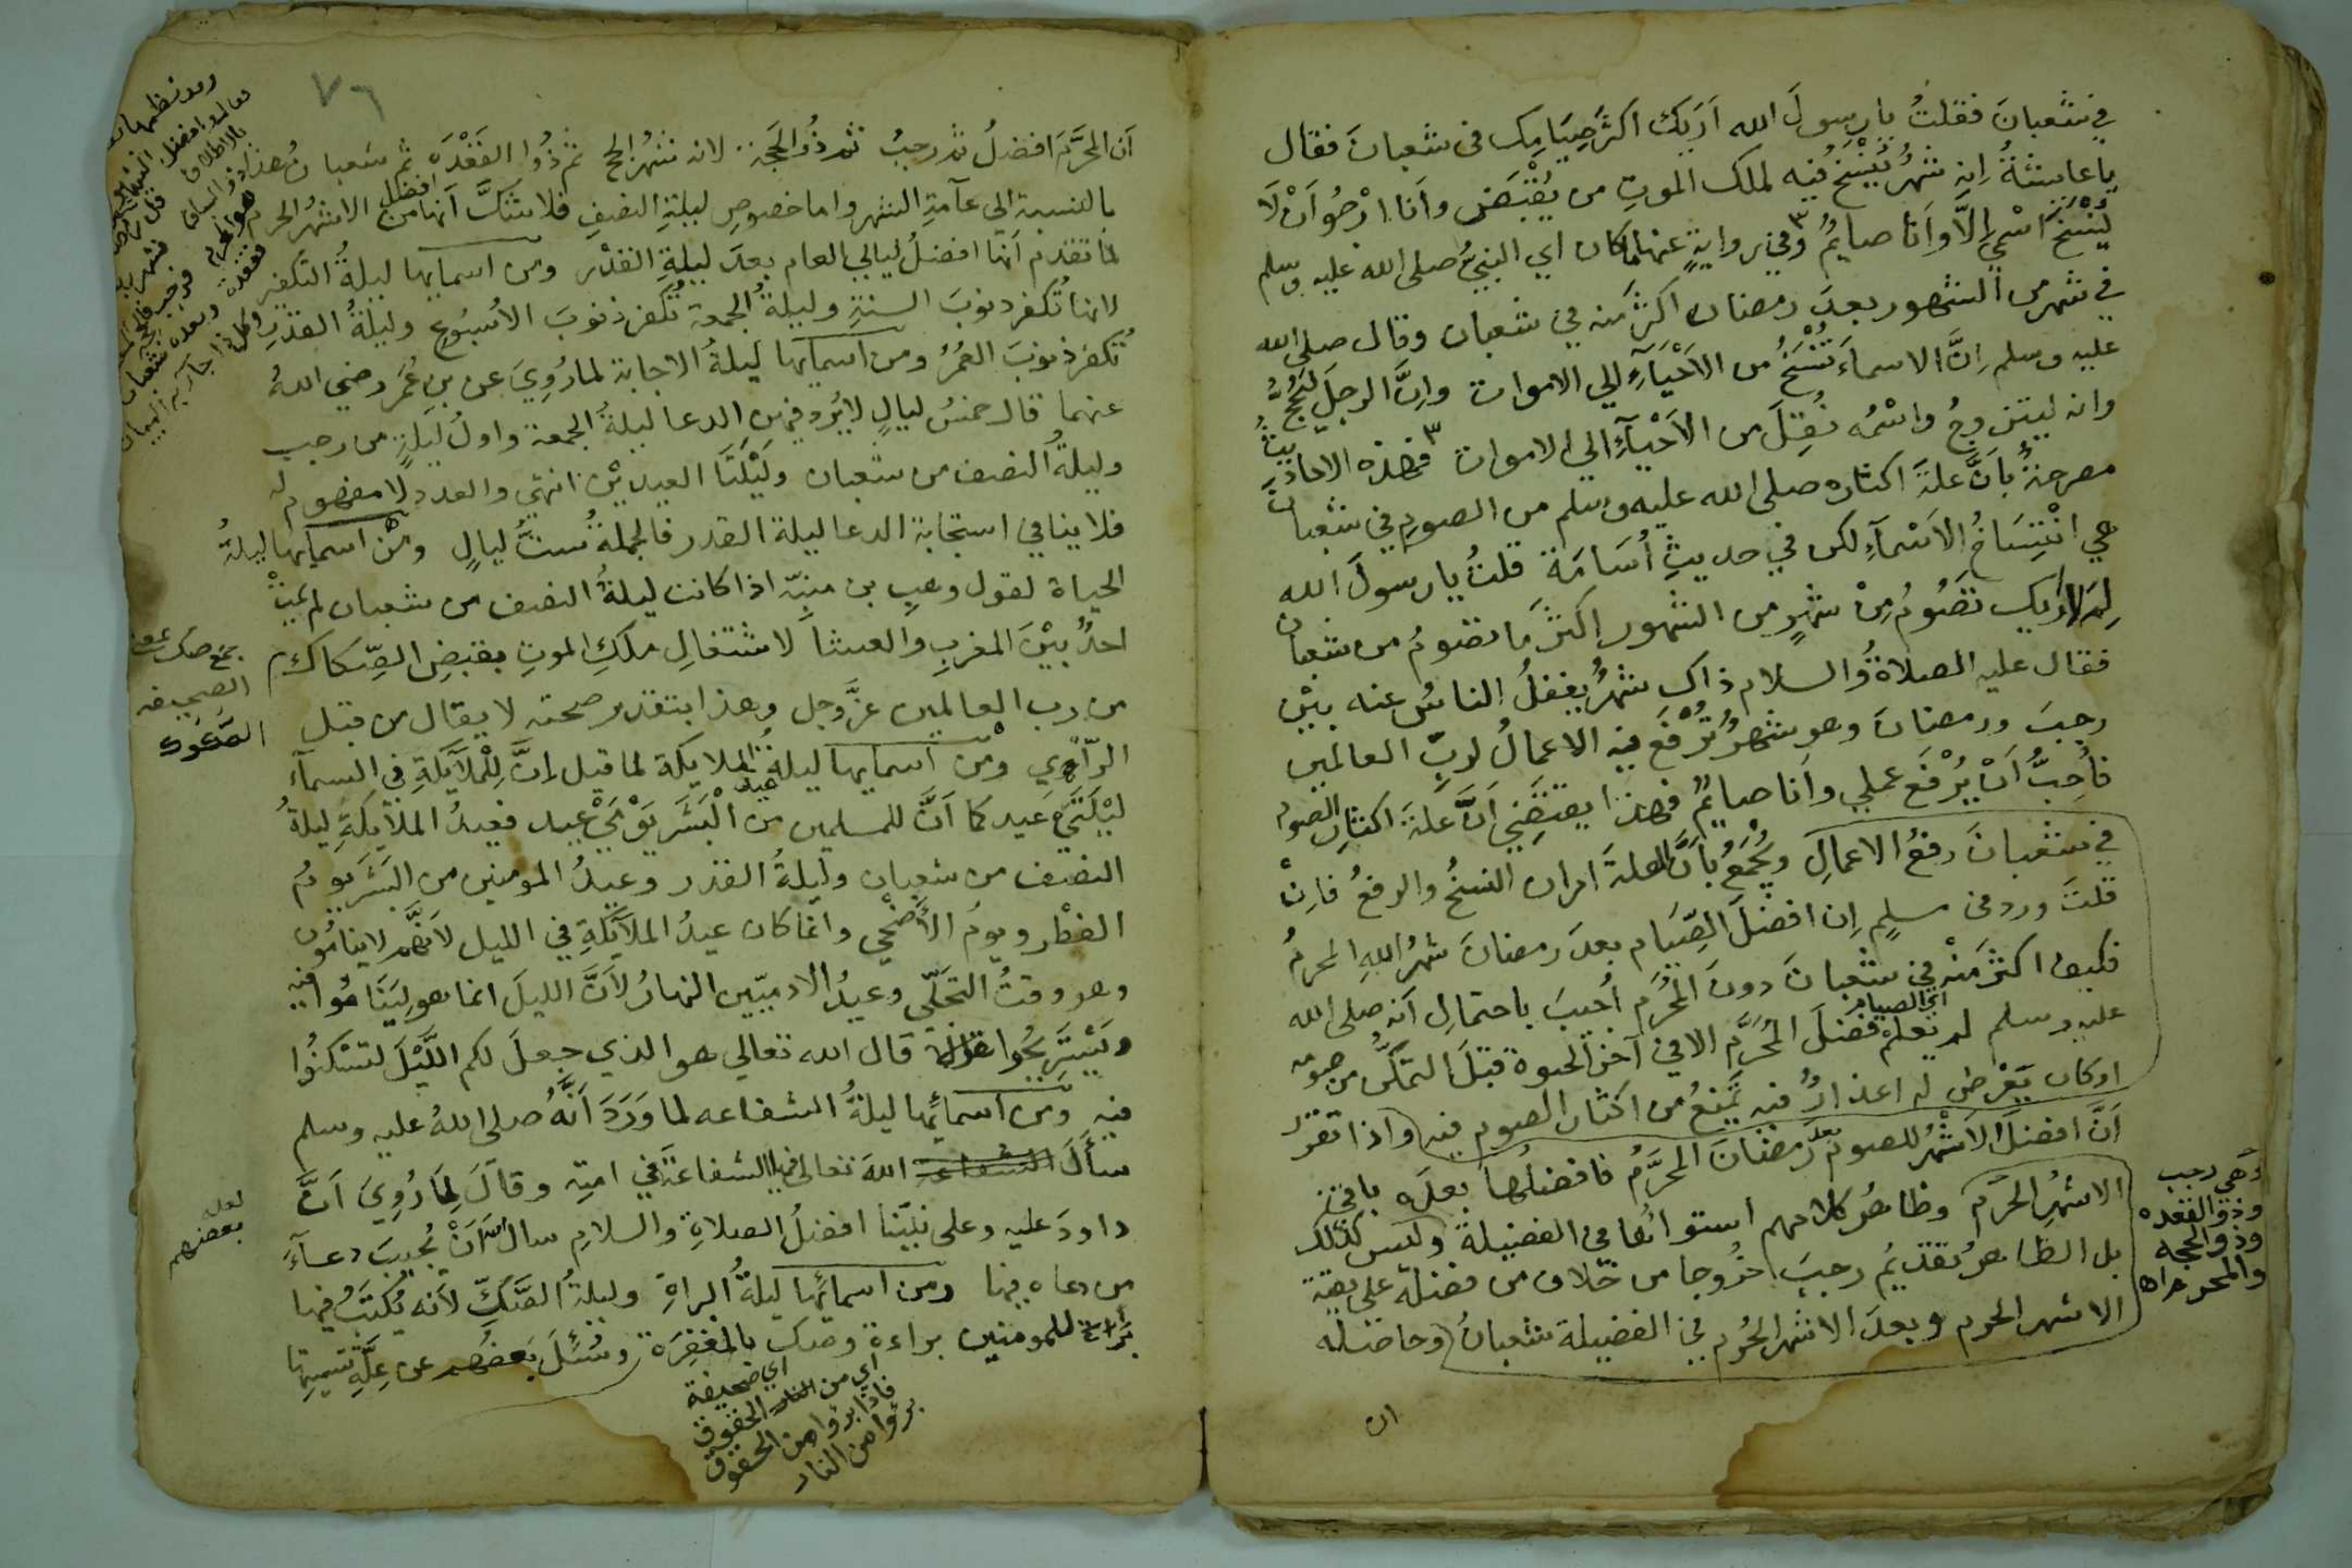 في شعبانَ فقلتُ يا رسولَ الله اَرَيك اكثَر صِيَامِك في شعبانَ فقال
يا عايشةُ اِنه شهرٌ يُنْسَخُ فيه لملك الموتِ من يُقْبَض وأنا ارْجُوا اَنْ لَا
يُنْسَخَ اسْمِي إلاَّ وأنا صايمٌ وفي روايةٍ عنها ما كان اي النبيُّ صلى الله عليه وسلم
في شهر من الشهور بعدَ رمضان اكثرَ منه في شعبان وقال صلى الله
عليه وسلم اِنَّ الاسماءَ تُنْسَخُ من الاَحْيَآءِ الي الاموات واِنَّ الرجلَ ليَحُجُّ
وانه ليتزوجُ واسْمُه نُقِلَ من الاَحْيَآءِ الى الاموات فهذه الاحاديثُ
مصرحةٌ بأنَّ علةَ اكثاره صلى الله عليه وسلم من الصومِ في شعبان
هي انْتِسَاخُ الاَسْمآءِ لكن في حديثِ أُسَامَة قلتُ يا رسولَ الله
لِمَ اَرَيك تصُومُ مِنْ شهرٍ من الشهور اكثرَ ما تصومُ من شعبان
فقال عليه الصلاةُ والسلام ذاك شهرٌ يغفلُ الناسُ عنه بيْن
رجبَ ورمضانَ وهو شهرٌ تُرْفَع فيه الاعمالُ لربّ العالمين
فأُحِبُّ اَنْ يُرْفَع عملي وأنا صايمٌ فهذا يقتضِي اَنَّ علةَ اكثارِ الصوم
في شعبانَ رفعُ الاعمالِ ويُجْمَعُ بأنَّ العلةَ امران النسخُ والرفعُ فاِنْ
قلتَ ورد في مسلمٍ اِن افضلَ الصِّيَام بعدَ رمضانَ شهرُ اللهِ المحرمُ
فكيف اكثرَ منْه في شعبانَ دونَ المُحَرَّم أُجيبَ باحتمالِ اَنه صلى الله
عليه وسلم لم يعلمْ فضلَ المُحَرَّم الا في آخر الحيوة قبلَ التمكّن من صومه
اي الصيام
اوكان يَعْرِض له اعذارٌ فيه تمنعُ من اكثار الصوم فيه واذا تقرر
اَنَّ افضلَ الاَشْهُر للصوم بعدَ رمضانَ المحرَّمُ فافضلُها بعدَه باقي
الاشهُرِ الحُرُم وظاهرُ كلامهم استوائُها في الفضيلة وليس كذلك
بل الظاهرُ تقديمُ رجبَ خُروجا من خلاف من فضله على بقية
الاشهر الحرم وبعدَ الاشهر الحُرُم في الفضيلة شعبانُ وحاصله
وهي رجب
وذو القعده
وذو الحجه
والمحرم اه
ان
٧٦
اَن المحرَّمَ افضلُ ثم رجبُ ثم ذُو الحَجةِ لانه شهرُ الحج ثم ذُوا القَعْدَه ثم شعبانُ هذا
بالنسبة الي عآمةِ الشهر واما خصوصِ ليلةِ النصفِ فلا شَكَّ اَنها من افضل الاشهُر الحرم
لما تقدم اَنها افضلُ ليالي العام بعدَ ليلةِ القدْر ومن اسمايها ليلةُ التكفير
لانها تُكفر ذنوبَ السنةِ وليلةُ الجمعة تُكفر ذنوبَ الاُسْبُوعِ وليلةُ القدْرِ
تُكفر ذنوبَ العُمُرِ ومن اسمايها ليلةُ الاجابة لما رُوِيَ عن بنِ عُمَر رضي اللهُ
عنهما قال خمسُ ليالٍ لا يُرد فيهن الدعا ليلةُ الجمعة واولُ ليلةٍ من رجب
وليلةُ النصف من شعبان ولَيْلَتَا العيديْن انتهي والعدد لا مفهوم له
فلا ينافي استجابة الدعا ليلة القدر فالجملةُ ستُّ ليالٍ ومن اسمايها ليلةُ
الحياة لقول وهبِ بن منبّه اذا كانت ليلةُ النصف من شعبان لم يمتْ
احدٌ بيْنَ المغربِ والعشا لاشتغالِ ملَكِ الموتِ بقبضِ الصِّكاك
من رب العالمين عزَّ وجل وهذا بتقدير صحته لا يقال من قبل
الرأي ومن اسمايها ليلةُ عيد الملايكة لما قيل اِنَّ لِلْملآيَكةِ في السمآءِ
ليْلَتَيْ عيد كما اَنَّ للمسلمين من الْبَشَر يَوْمَيْ عيد فعيدُ الملآيكةِ ليلةُ
النصف من شعبان وليلةُ القدر وعيدُ المومنين من البَشَر يومُ
الفطْر ويومُ الأضْحي وانما كان عيدُ الملآيكةِ في الليل لاَنَّهم لا ينامُون
وهو وقتُ التجَلّي وعيدُ الادميّين النهارُ لاَنَّ الليلَ انما هو ليَنَامُوا فيه
ويَسْتَريحُوا قال الله تعالي هو الذي جعلَ لكم اللَّيْلَ لتسْكنُوا
فيه ومن اسمائِها ليلةُ الشفاعه لما وَرَدَ اَنَّهُ صلى اللهُ عليه وسلم
سأَلَ اللهَ تعالى فيها الشفاعةَ في امتِه وقالَ لِمَا رُوِيَ اَنَّ
داودَ عليه وعلى نبيّنا افضلُ الصلاةِ والسلام سال الله اَنْ يُجيبَ دعآءَ
من دعاه فيها ومن اسمائِها ليلةُ البراةِ وليلةُ الصَّكّ لأنه يُكتَبُ فيها
براة للمومنين براءة وصك بالمغفِرَة وسُئِلَ بَعضُهم عن عِلَّةِ تسميتِها
جمع صك بمعني
الصحيفه
لعله
بعضهم
اي صحيفة
اي من الحقوق
فاذا برؤا من الحقوق
برؤا من النار